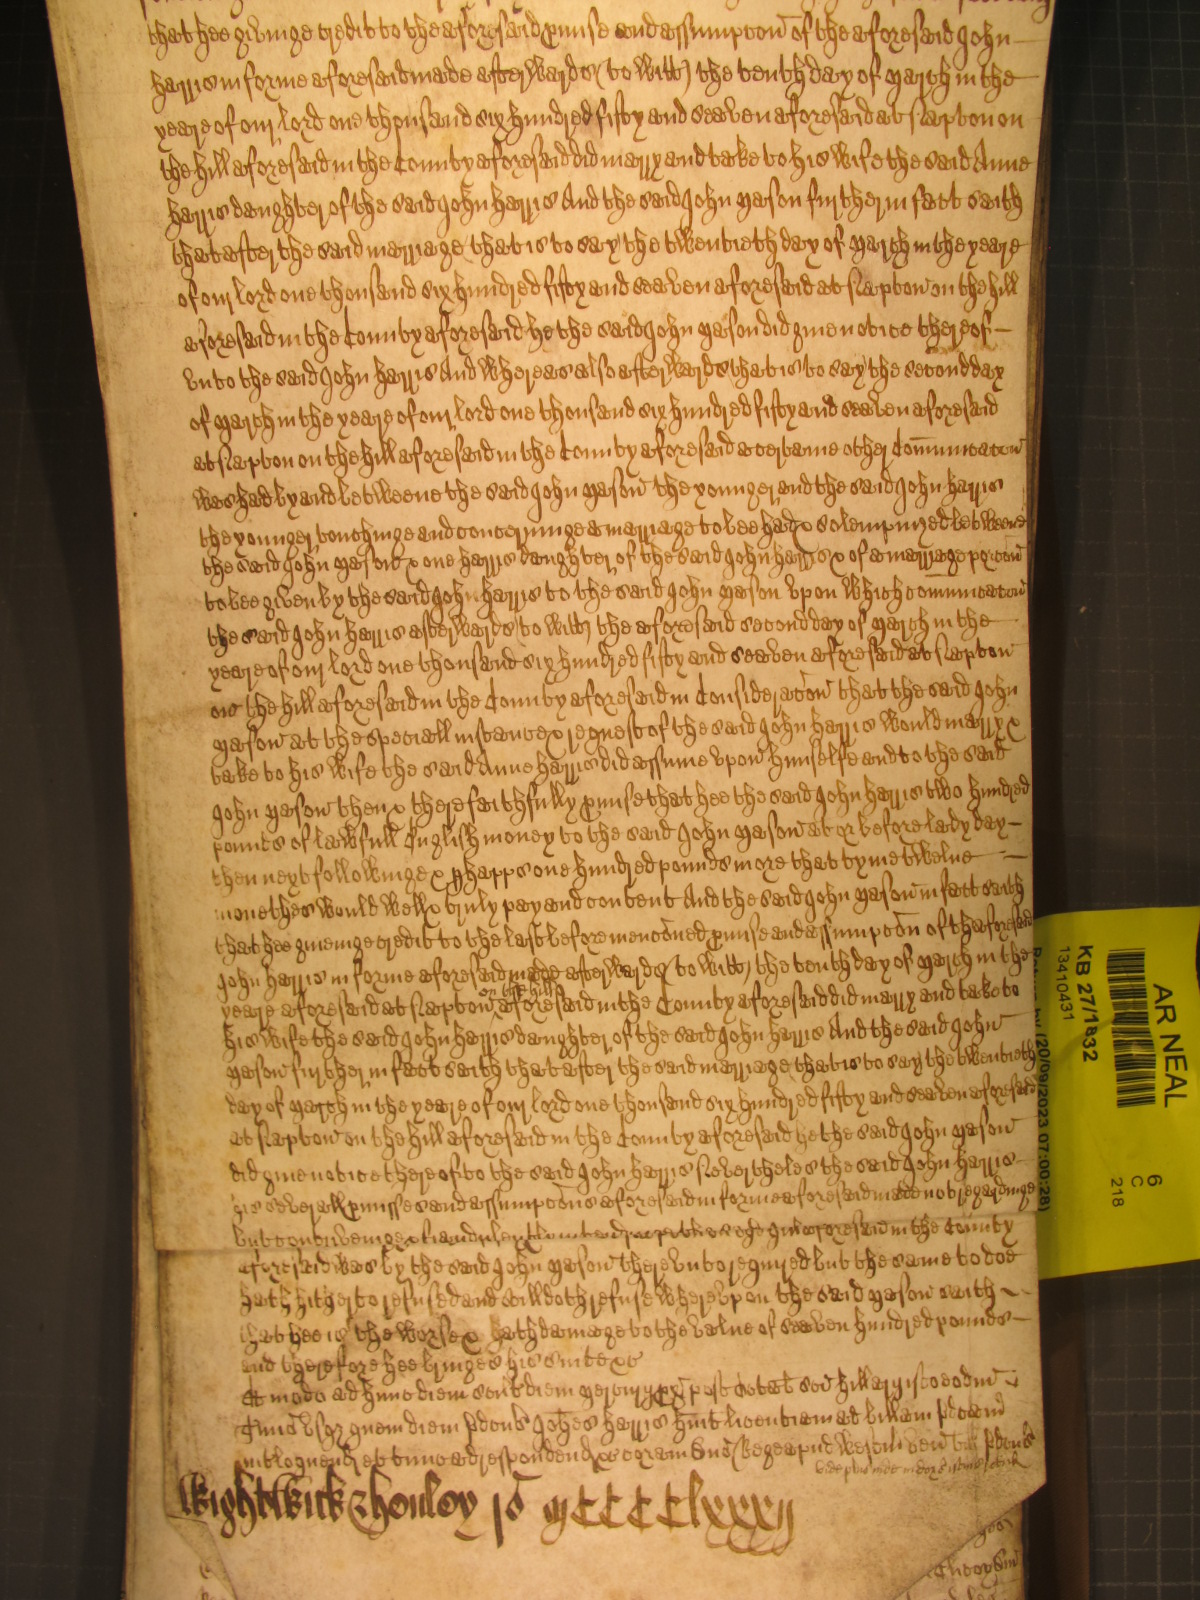 that hee giveinge credit to the aforesaid pmise and assumpton of the aforesaid John
Harris in forme aforesaid made afterwards (to witt) the tenth day of March in the
yeare of our lord one thousand six hundred fifty and seaven aforesaid at Slapton on
the hill aforesaid in the County aforesaid did marry and take to his wife the said Anne
Harris daughter of the said John Harris And the said John Mason further in fact saith
that after the said marriage that is to say the twentieth day of March in the yeare
of our lord one thousand six hundred fifty and seaven aforesaid at Slapton on the hill
aforesaid in the County aforesaid he the said John Mason did give notice thereof
unto the said John Harris And Whereas also afterwards that is to say the second day
of March in the yeare of our lord one thousand six hundred fifty and seaven aforesaid
at Slapton on the hill aforesaid in the County aforesaid a certaine other Comunicaton
was had by and betweene the said John Mason the younger and the said John Harris
the younger touchinge and concerninge a marriage to bee had & solempnized betweene
the said John Mason & one Harris daughter of the said John Harris & of a marriage porcon
to bee given by the said John Harris to the said John Mason upon which comunicaton
the said John Harris afterwards to witt the aforesaid second day of March in the
yeare of our lord one thousand six hundred fifty and seaven aforesaid at Slapton
on the hill aforesaid in the County aforesaid in Consideraton that the said John
Mason at the speciall instance & request of the said John Harris would marry &
take to his wife the said Anne Harris did assume upon himselfe and to the said
John Mason then & there faithfully pmise that hee the said John Harris two hundred
pounds of lawfull English money to the said John Mason at or before lady day
then next followinge & phapps one hundred pounds more that tyme twelve
monethes would well & truly pay and content And the said John Mason in fact saith
that hee giveinge credit to the last before mentoned pmise and assumpton of thaforesaid
John Harris in forme aforesaid made afterwards (to witt) the tenth day of March in the
yeare aforesaid at Slapton on the hill aforesaid in the County aforesaid did marry and take to
his wife the said John Harris daughter of the said John Harris And the said John
Mason further in fact saith that after the said marriage that is to say the twentieth
day of March in the yeare of our lord one thousand six hundred fifty and seaven aforesaid
at Slapton on the hill aforesaid in the County aforesaid he the said John Mason
did give notice thereof to the said John Harris Neverthelesse the said John Harris
his severall pmisses and assumptons aforesaid in forme aforesaid made not regardinge
but contriveinge aforesaid in the County
aforesaid was by the said John Mason thereunto required but the same to doe
hath hitherto refused and still doth refuse whereupon the said Mason saith
that hee is the worse & hath damage to the value of seaven hundred pounds
and therefore hee bringes his suite &c
Et modo ad hunc diem scilt diem post sci Hillarij isto eodm
Tmio usq quem diem pdcus Johes Harris huit licentiam ad billam pdcam
intloquendi et tunc ad respondend &c coram Dno Rege apud Westm ven tam pdcus
Wightwick & Henley ps MCCCCClxxxij
AR NEAL
KB 27/1832
13410431
6
C
218
(20/09/2023 07:00:28)